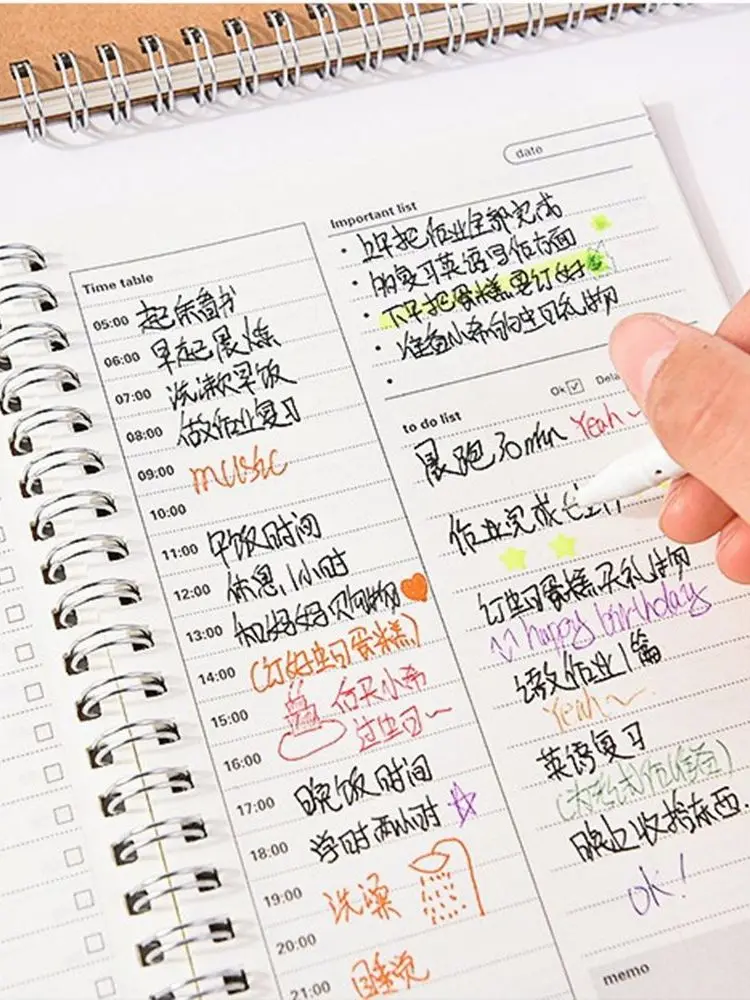 date
Time table
05:00 起床看书
06:00 早起晨炼
07:00 洗漱吃早饭
08:00 做作业复习
09:00 music
10:00
11:00 早饭时间
12:00 休息1小时
13:00 和好好购物
14:00 (订好生日蛋糕)
15:00 今天小希
过生日~
16:00
17:00 晚饭时间
18:00 学时两小时
19:00 洗澡
20:00
21:00 睡觉
Important list
上午把作业全部完成
的复习英语写作方面
下午把蛋糕要订好
准备小希的生日礼物
Ok Dela
to do list
晨跑30min Yeah~
作业完成
订生日蛋糕买礼物
happy birthday
语文作业1篇
Yeah~
英语复习
(为考试作准备)
晚上收拾东西
ok!
memo